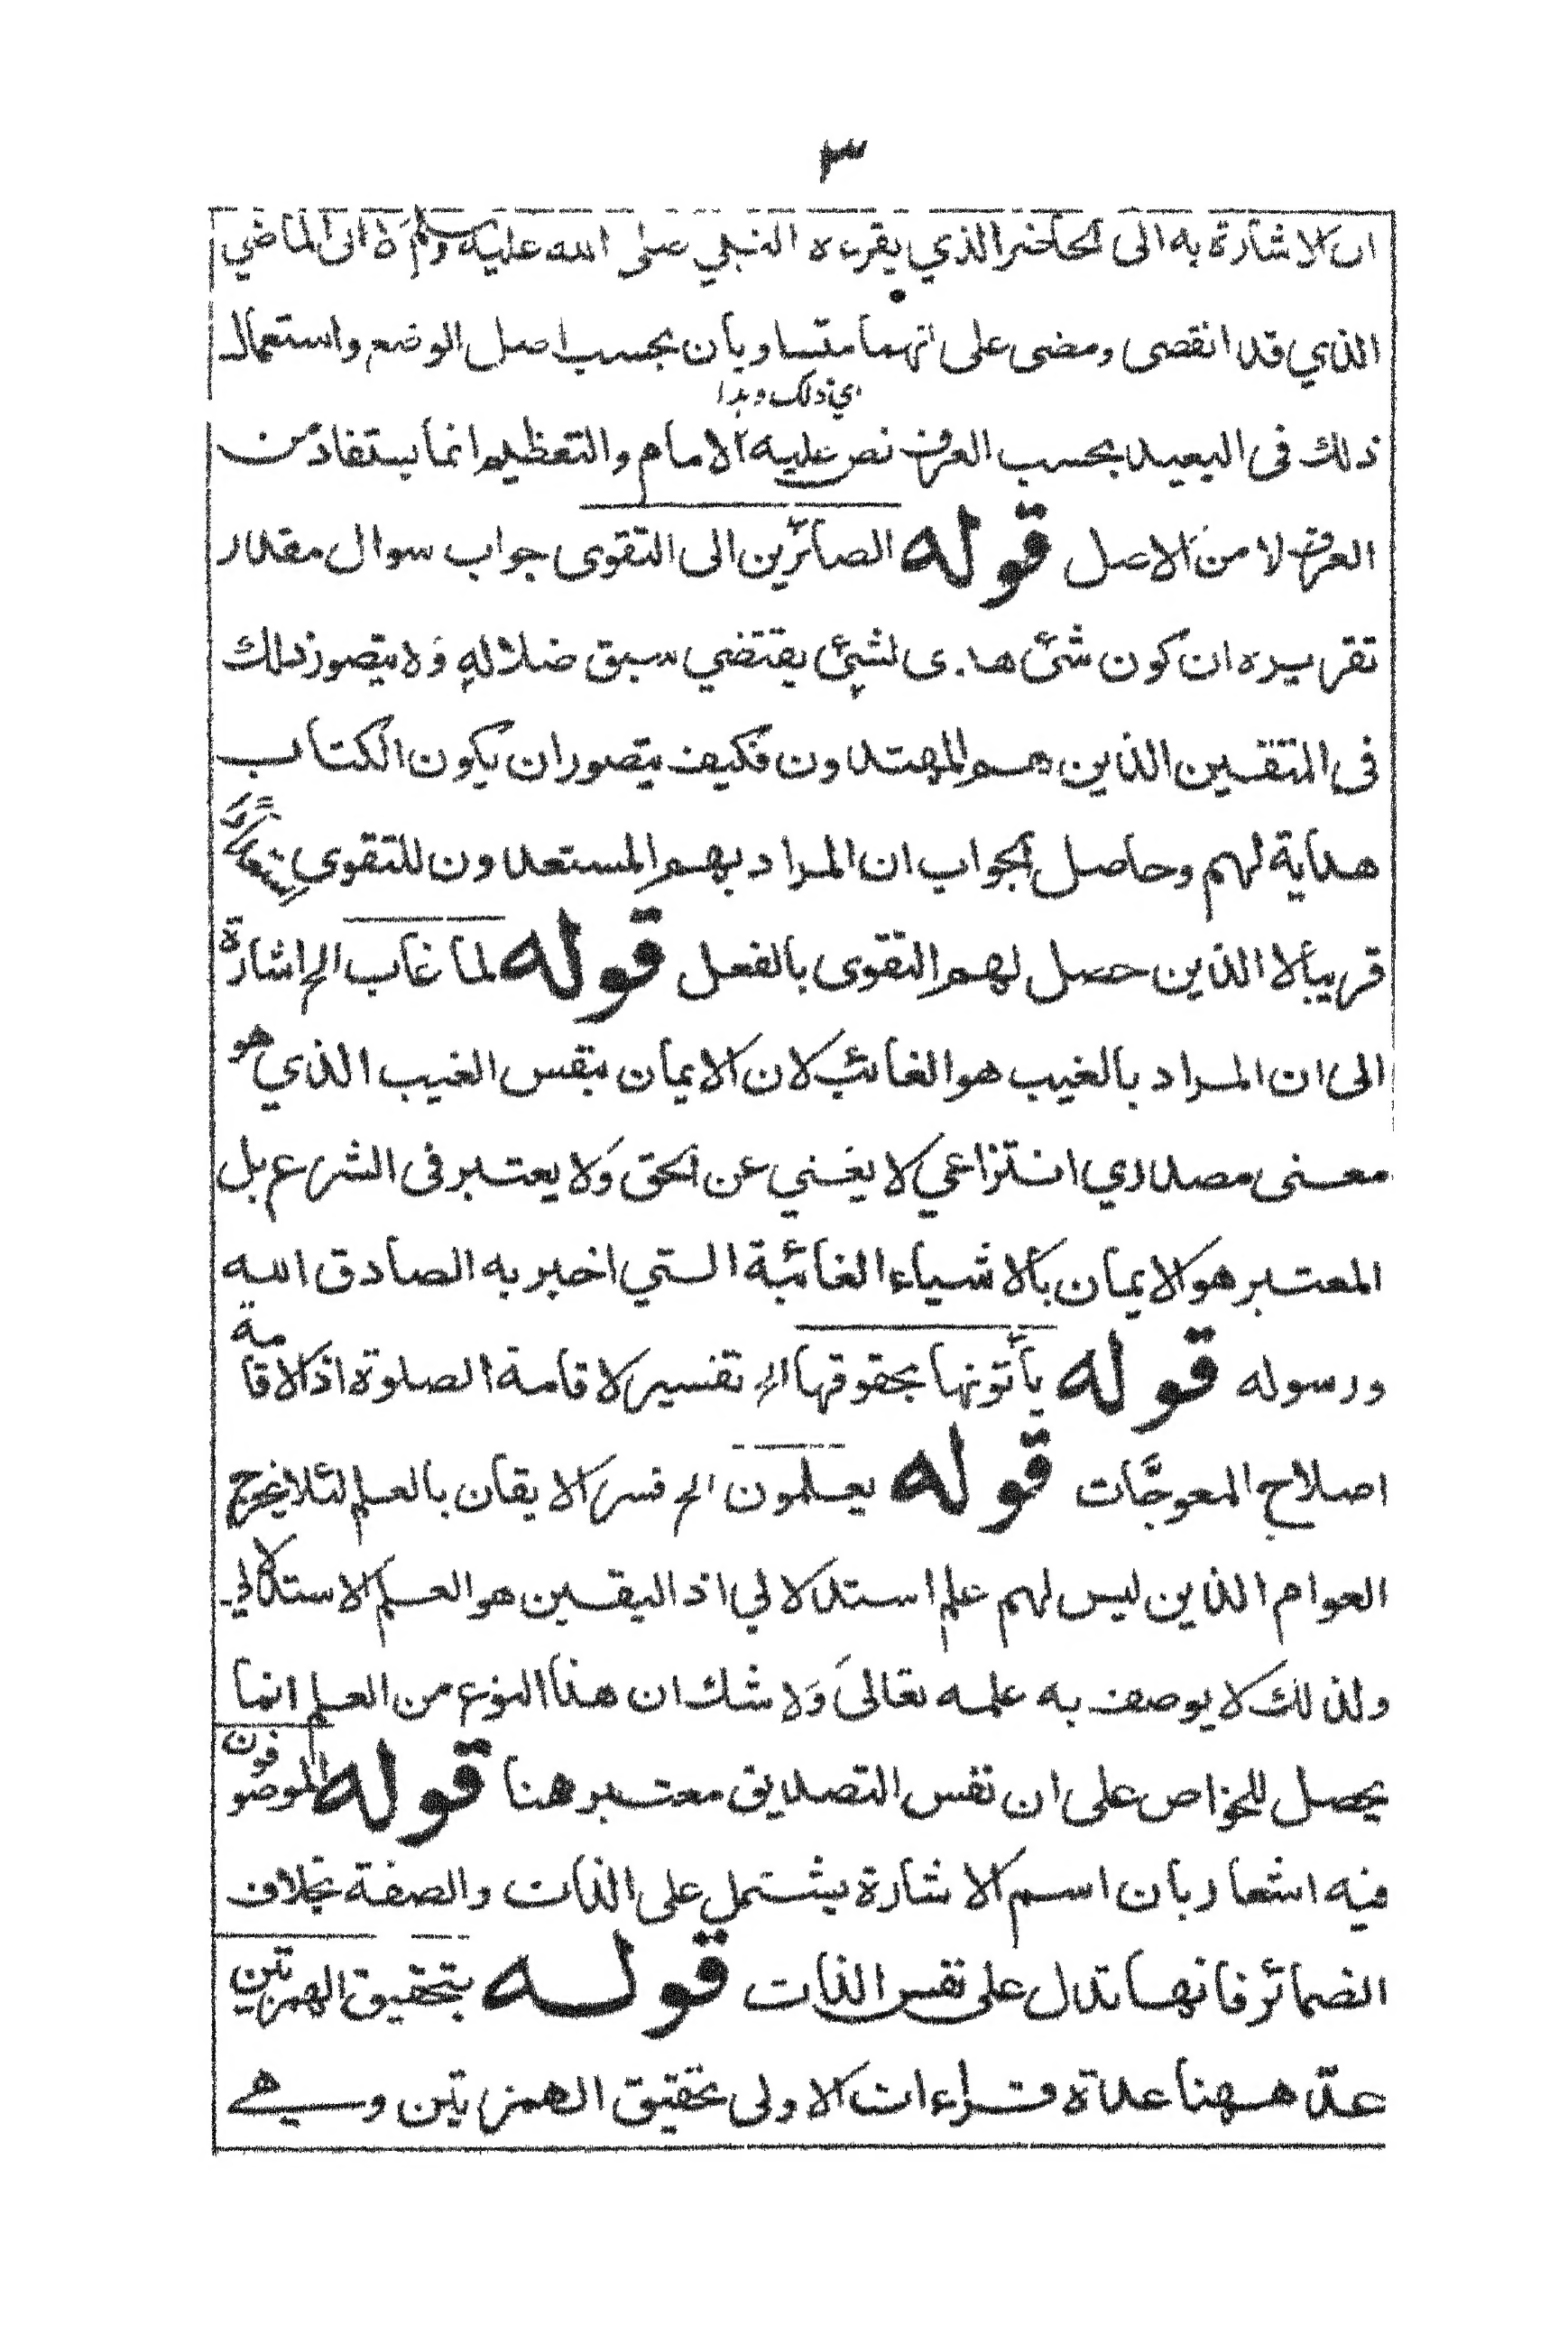 ٣
ان الاشارة به الى الحاضر الذي يقرءه النبي صلى الله عليه وسلم لا الى الماضي
الذي قد انقضى ومضى على انهما متساويان بحسب اصل الوضع واستعمال
اي ذلك وهذا
ذلك فى البعيد بحسب العرف نص عليه الامام والتعظيم انما يستفاد من
العرف لا من الاصل قوله الصائرين الى التقوى جواب سوال مقدر
تقريره ان كون شئ هدى لشئ يقتضي سبق ضلاله ولا يتصور ذلك
فى المتقين الذين هم المهتدون فكيف يتصور ان يكون الكتاب
هداية لهم وحاصل الجواب ان المراد بهم المستعدون للتقوى
قريبا لا الذين حصل لهم التقوى بالفعل قوله لما غاب الخ اشارة
الى ان المراد بالغيب هو الغائب لان الايمان بنفس الغيب الذي هو
معنى مصدري انتزاعي لا يغني عن الحق ولا يعتبر فى الشرع بل
المعتبر هو الايمان بالاشياء الغائبة التي اخبر به الصادق الله
ورسوله قوله يأتونها بحقوقها الخ تفسير لاقامة الصلوة اذ الاقامة
اصلاح المعوجَّات قوله يعلمون الخ فسر الايقان بالعلم لئلا يخرج
العوام الذين ليس لهم علم استدلالي اذ اليقين هو العلم الاستدلالي
ولذلك لا يوصف به علمه تعالى ولا شك ان هذا النوع من العلم انما
يحصل للخواص على ان نفس التصديق معتبر هنا قوله الموصوفون
فيه اشعار بان اسم الاشارة يشتمل على الذات والصفة بخلاف
الضمائر فانها تدل على نفس الذات قوله بتحقيق الهمزتين
عدّ ههنا عدة قراءات الاولى تحقيق الهمزتين وهي